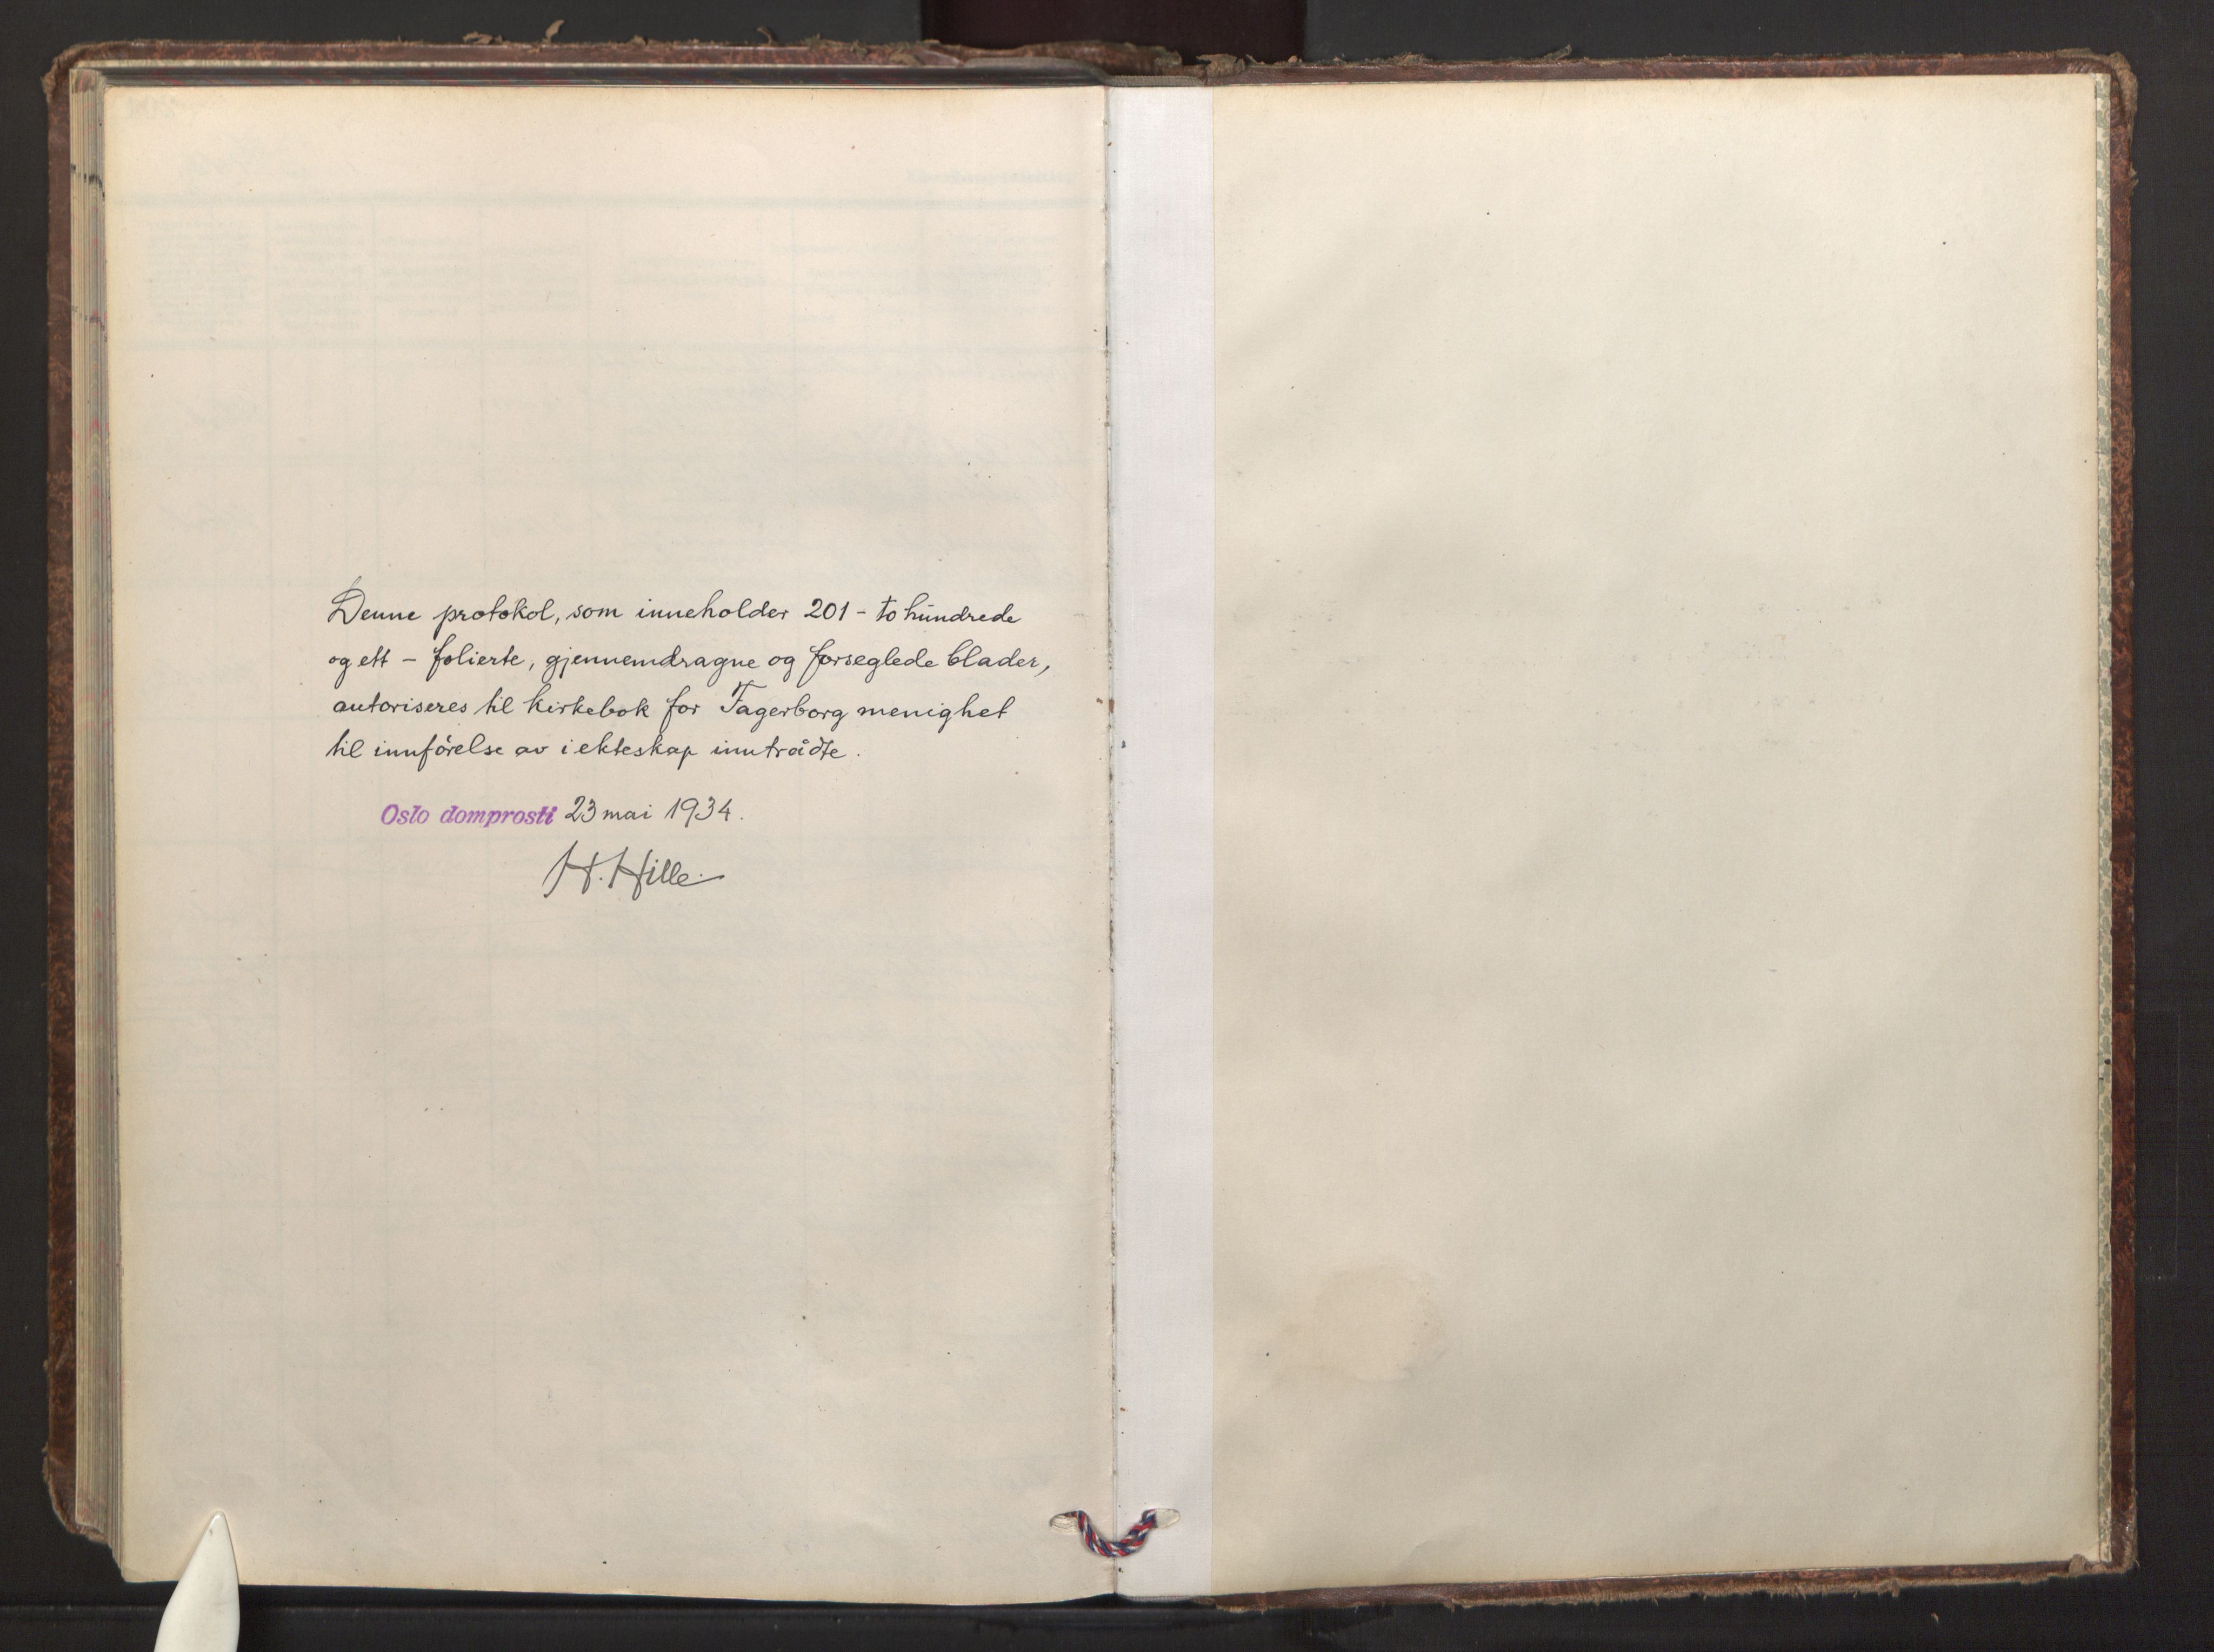 Denne protokol, som inneholder 201 – to hundrede
og ett – folierte, gjennemdragne og forseglede blader,
autoriseres til kirkebok for Fagerborg menighet
til innførelse av i ekteskap inntrådte.
Oslo domprosti 23 mai 1934.
H. Hille